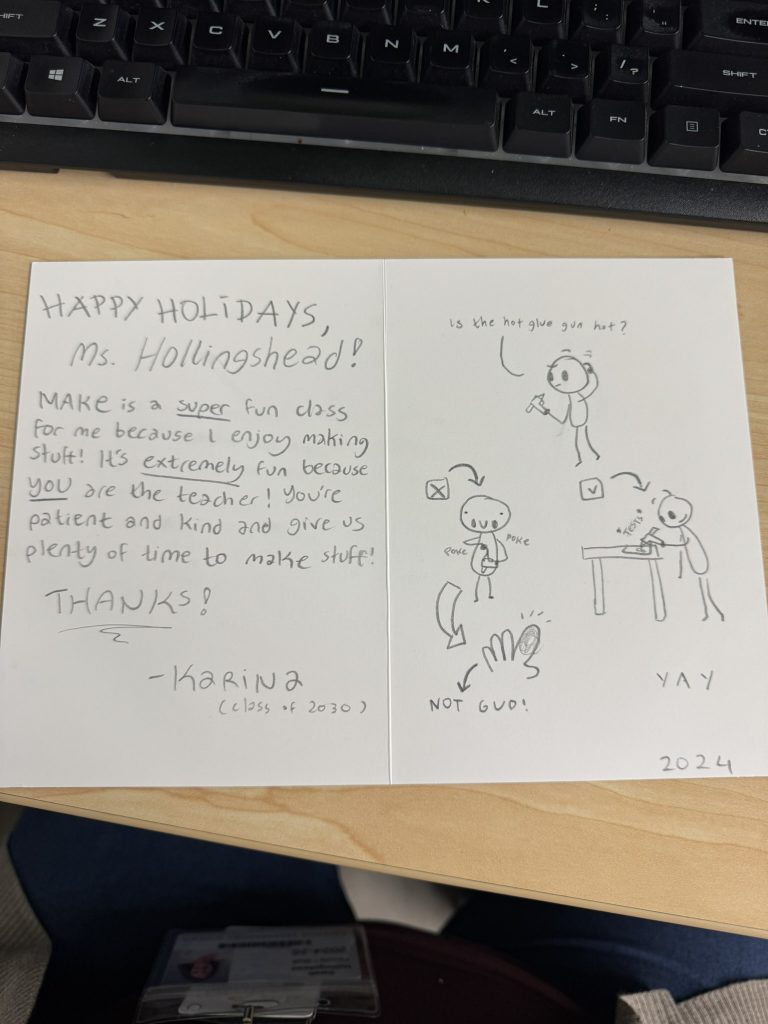 SHIFT
Z X C V B N M
ENTER
SHIFT
ALT
ALT
FN
HAPPY HOLIDAYS,
Ms. Hollingshead!
MAKE is a super fun class
for me because I enjoy making
stuff! It's extremely fun because
you are the teacher! You're
patient and kind and give us
plenty of time to make stuff!
THANKS!
-Karina
(class of 2030)
is the hot glue gun hot?
poke
poke
*TESTS*
NOT GUD!
YAY
2024